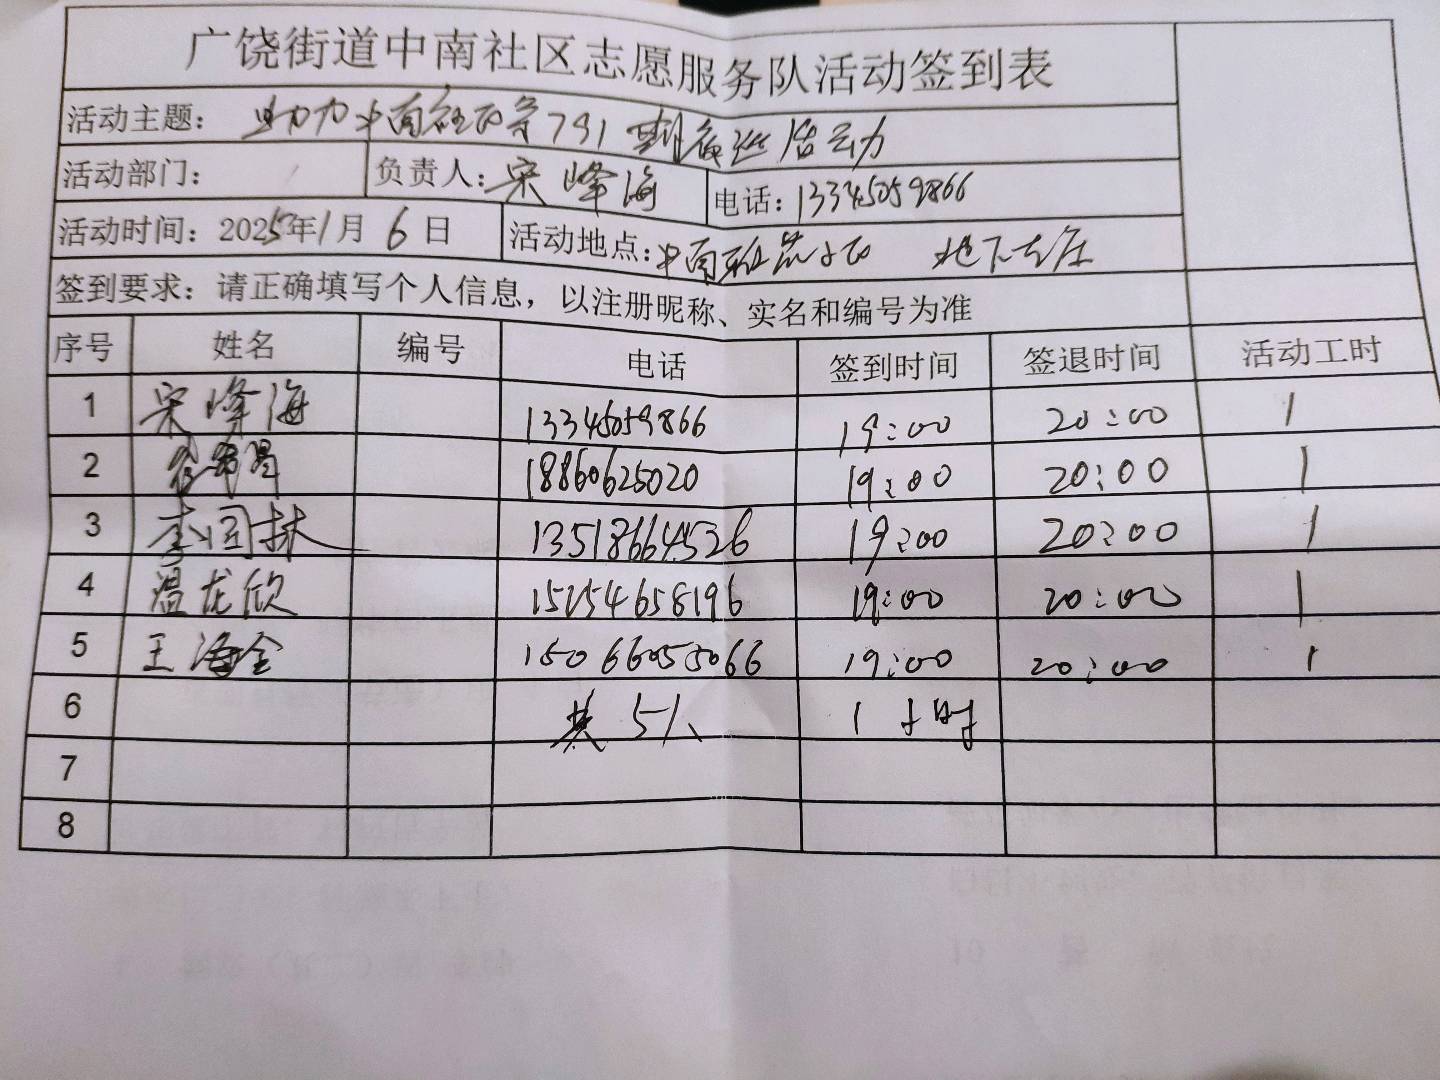 广饶街道中南社区志愿服务队活动签到表
活动主题： 助力中南社区
活动部门： 负责人：宋峰海 电话：13345059866
活动时间：2025年1月6日 活动地点：中南 小区 地下车库
签到要求：请正确填写个人信息，以注册昵称、实名和编号为准
序号 姓名 编号 电话 签到时间 签退时间 活动工时
1 宋峰海 13345059866 19:00 20:00 1
2 18860625020 19:00 20:00 1
3 李同林 13518664526 19:00 20:00 1
4 温龙欣 15254658196 19:00 20:00 1
5 王海全 15066055066 19:00 20:00 1
6 共5人 1小时
7
8